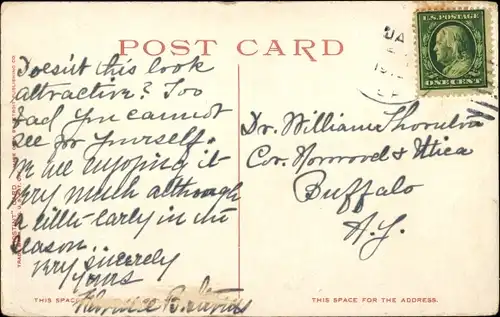 POST CARD
U.S. POSTAGE
ONE CENT
Doesn't this look
attractive? Too
bad you cannot
see for yourself.
We are enjoying it
very much although
a little early in the
season.
Very sincerely
yours
Dr. William
Cor. Norwood & Utica
Buffalo
N.Y.
THIS SPACE
THIS SPACE FOR THE ADDRESS.